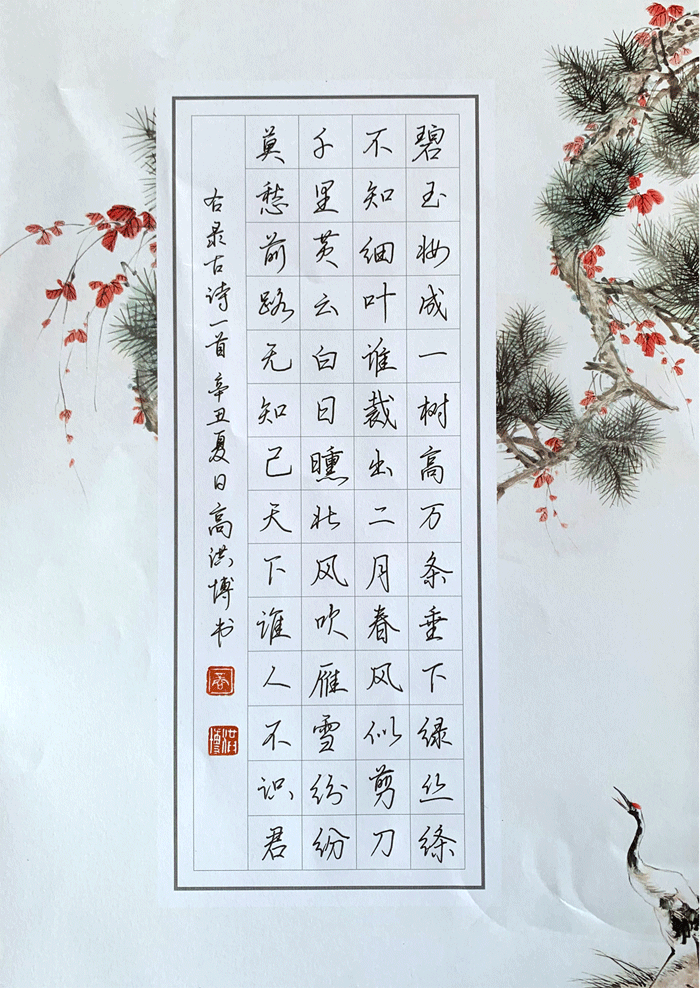 碧玉妆成一树高万条垂下绿丝绦
不知细叶谁裁出二月春风似剪刀
千里黄云白日曛北风吹雁雪纷纷
莫愁前路无知己天下谁人不识君
右录古诗一首 辛丑夏日高洪博书
高
洪博